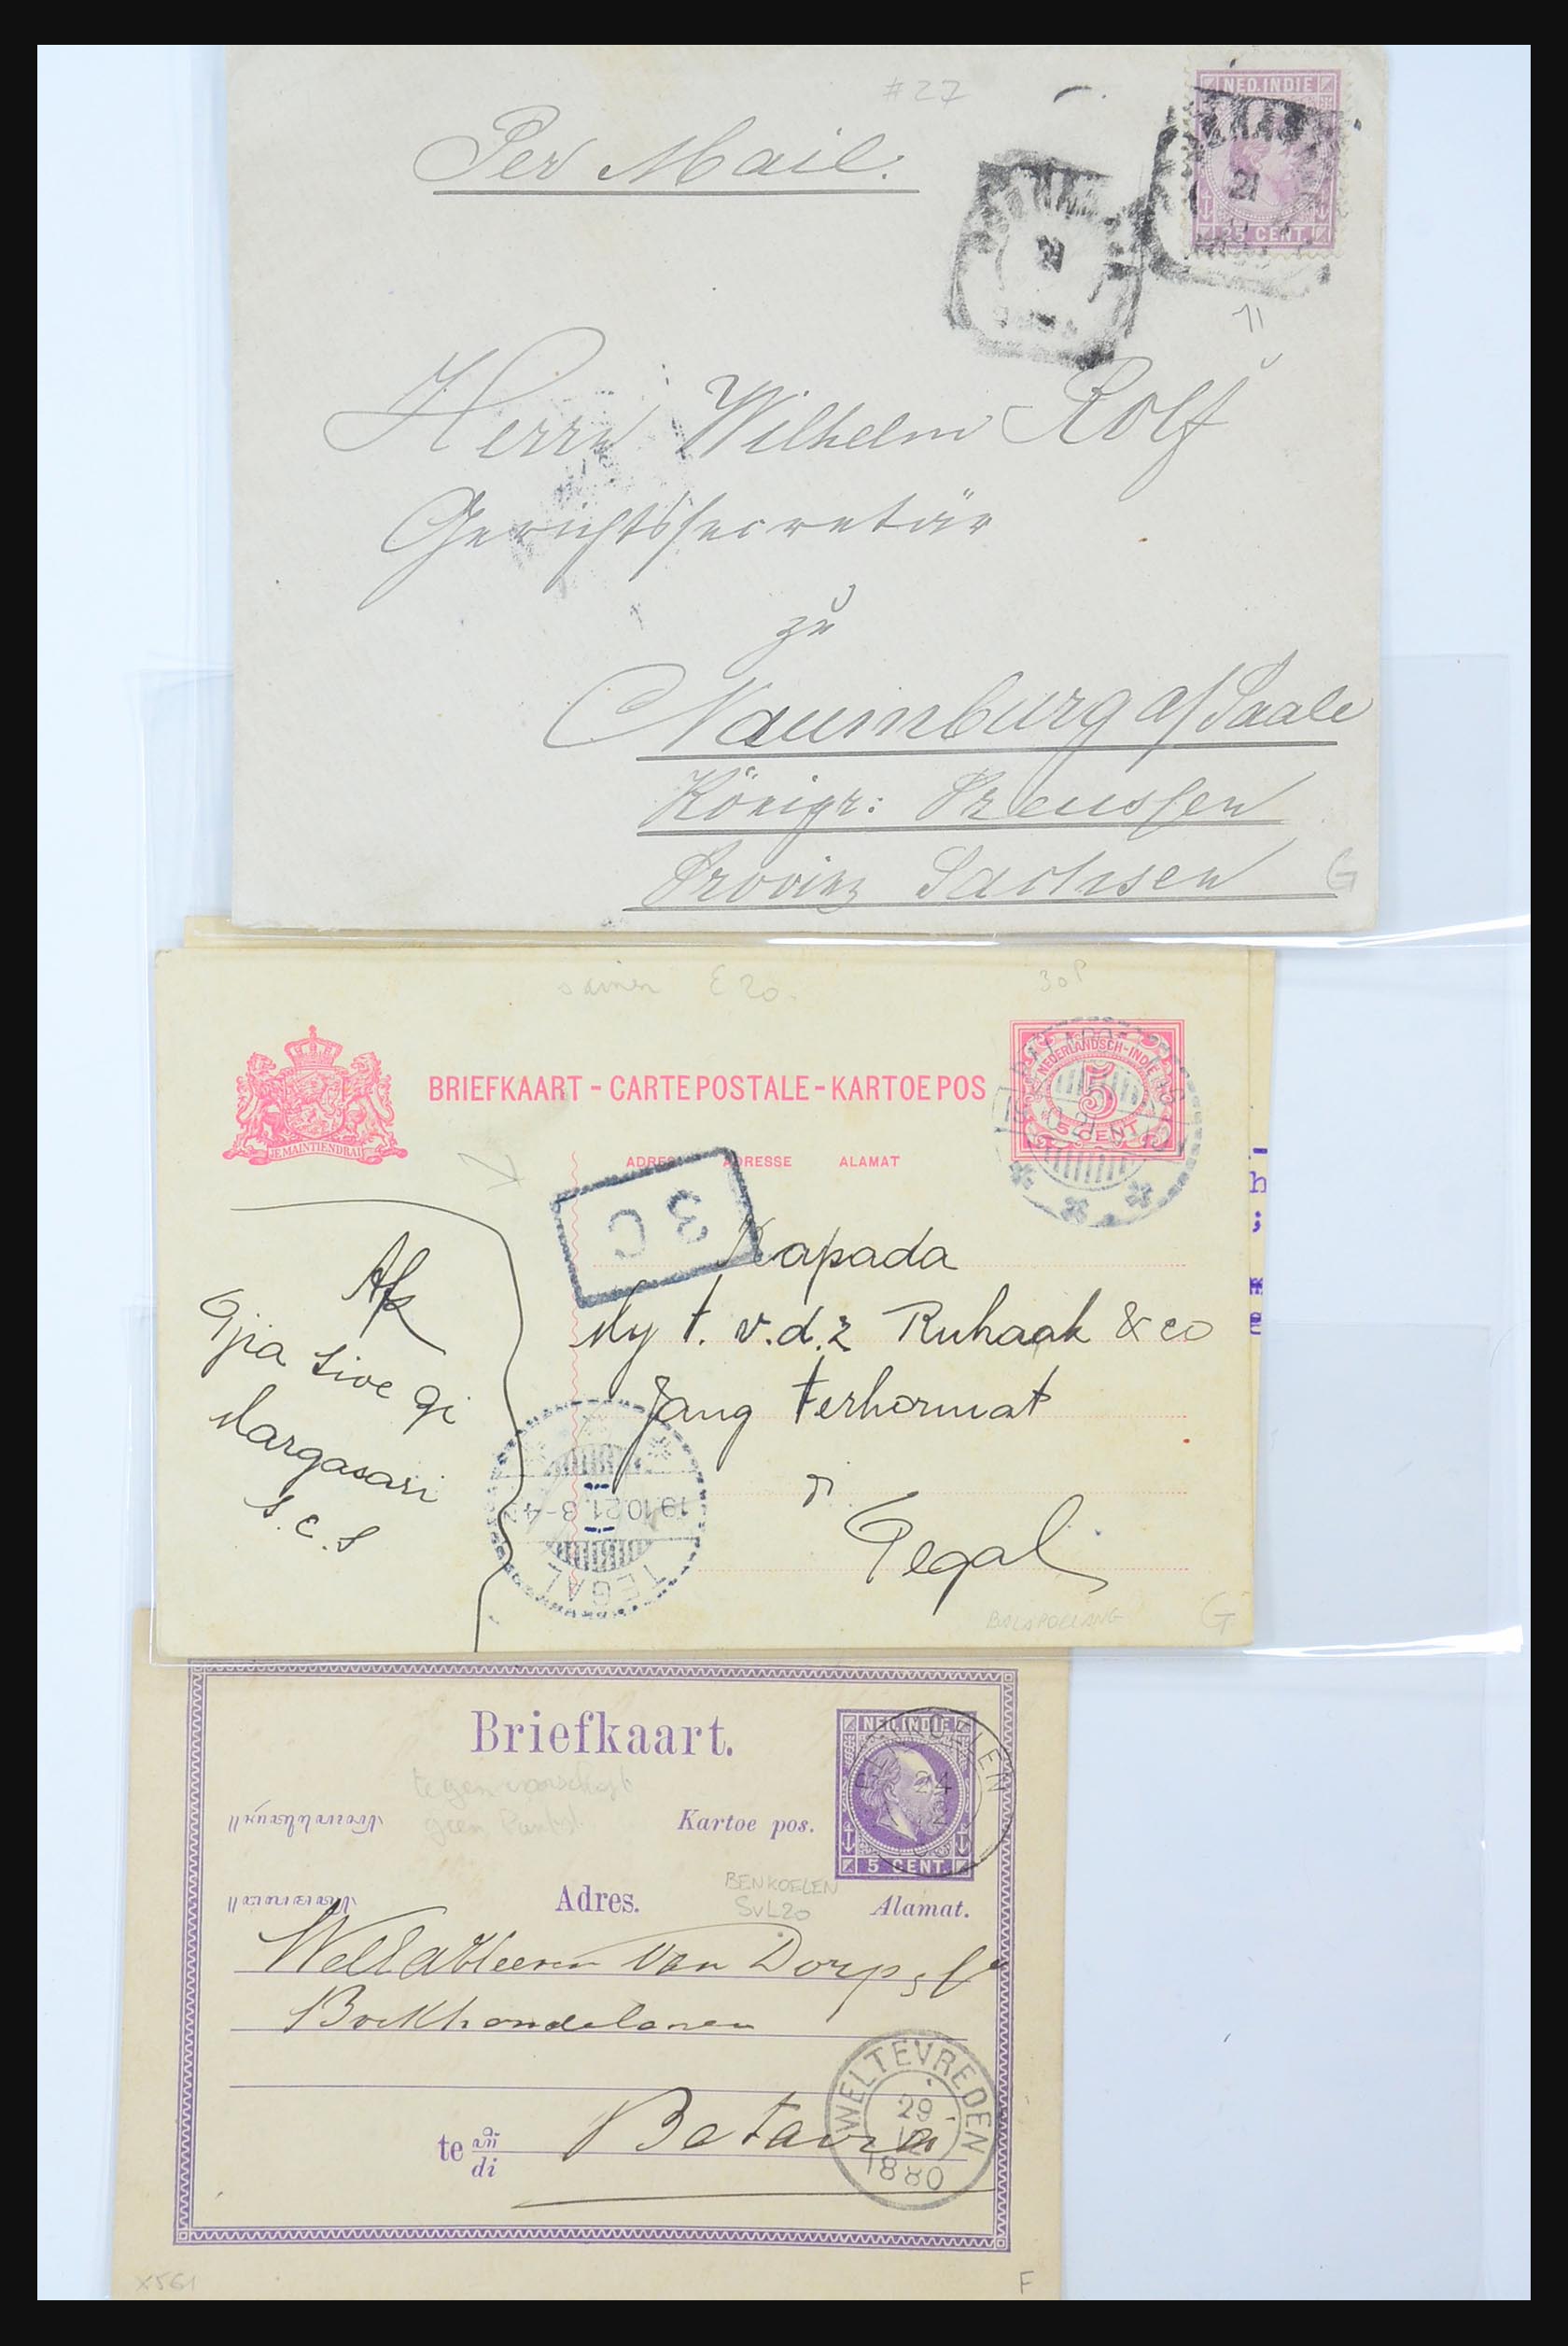 #27
Per Mail.
NED. INDIE
21
25 CENT.
21
11
Herrn Wilhelm Rolf
Gerichtssecretär
zu
Naumburg a/Saale
Königr: Preussen
Provinz Sachsen
G
E 20.
30P
BRIEFKAART - CARTE POSTALE - KARTOE POS
NEDERLANDSCH-INDIË
5
5 CENT
JE MAINTIENDRAI
ADRES ADRESSE ALAMAT
3 C
Kapada
My t. v.d. z Ruhaak & co
Jang terhormat
di
Tegal
Afz
Tjia Sioe Tji
Margasari
S.C.S
19.10.21. 3-4N
TEGAL
BALAPOELANG
G
Briefkaart.
NED. INDIE
BENKOELEN
24
Kartoe pos.
5 CENT.
tegen voorschrift
geen Puntst
BENKOELEN
SvL20
Adres.
Alamat.
WelEdHeeren Van Dorp & Co
Boekhandelaren
te
di
Batavia
WELTEVREDEN
29
12
1880
X561
F